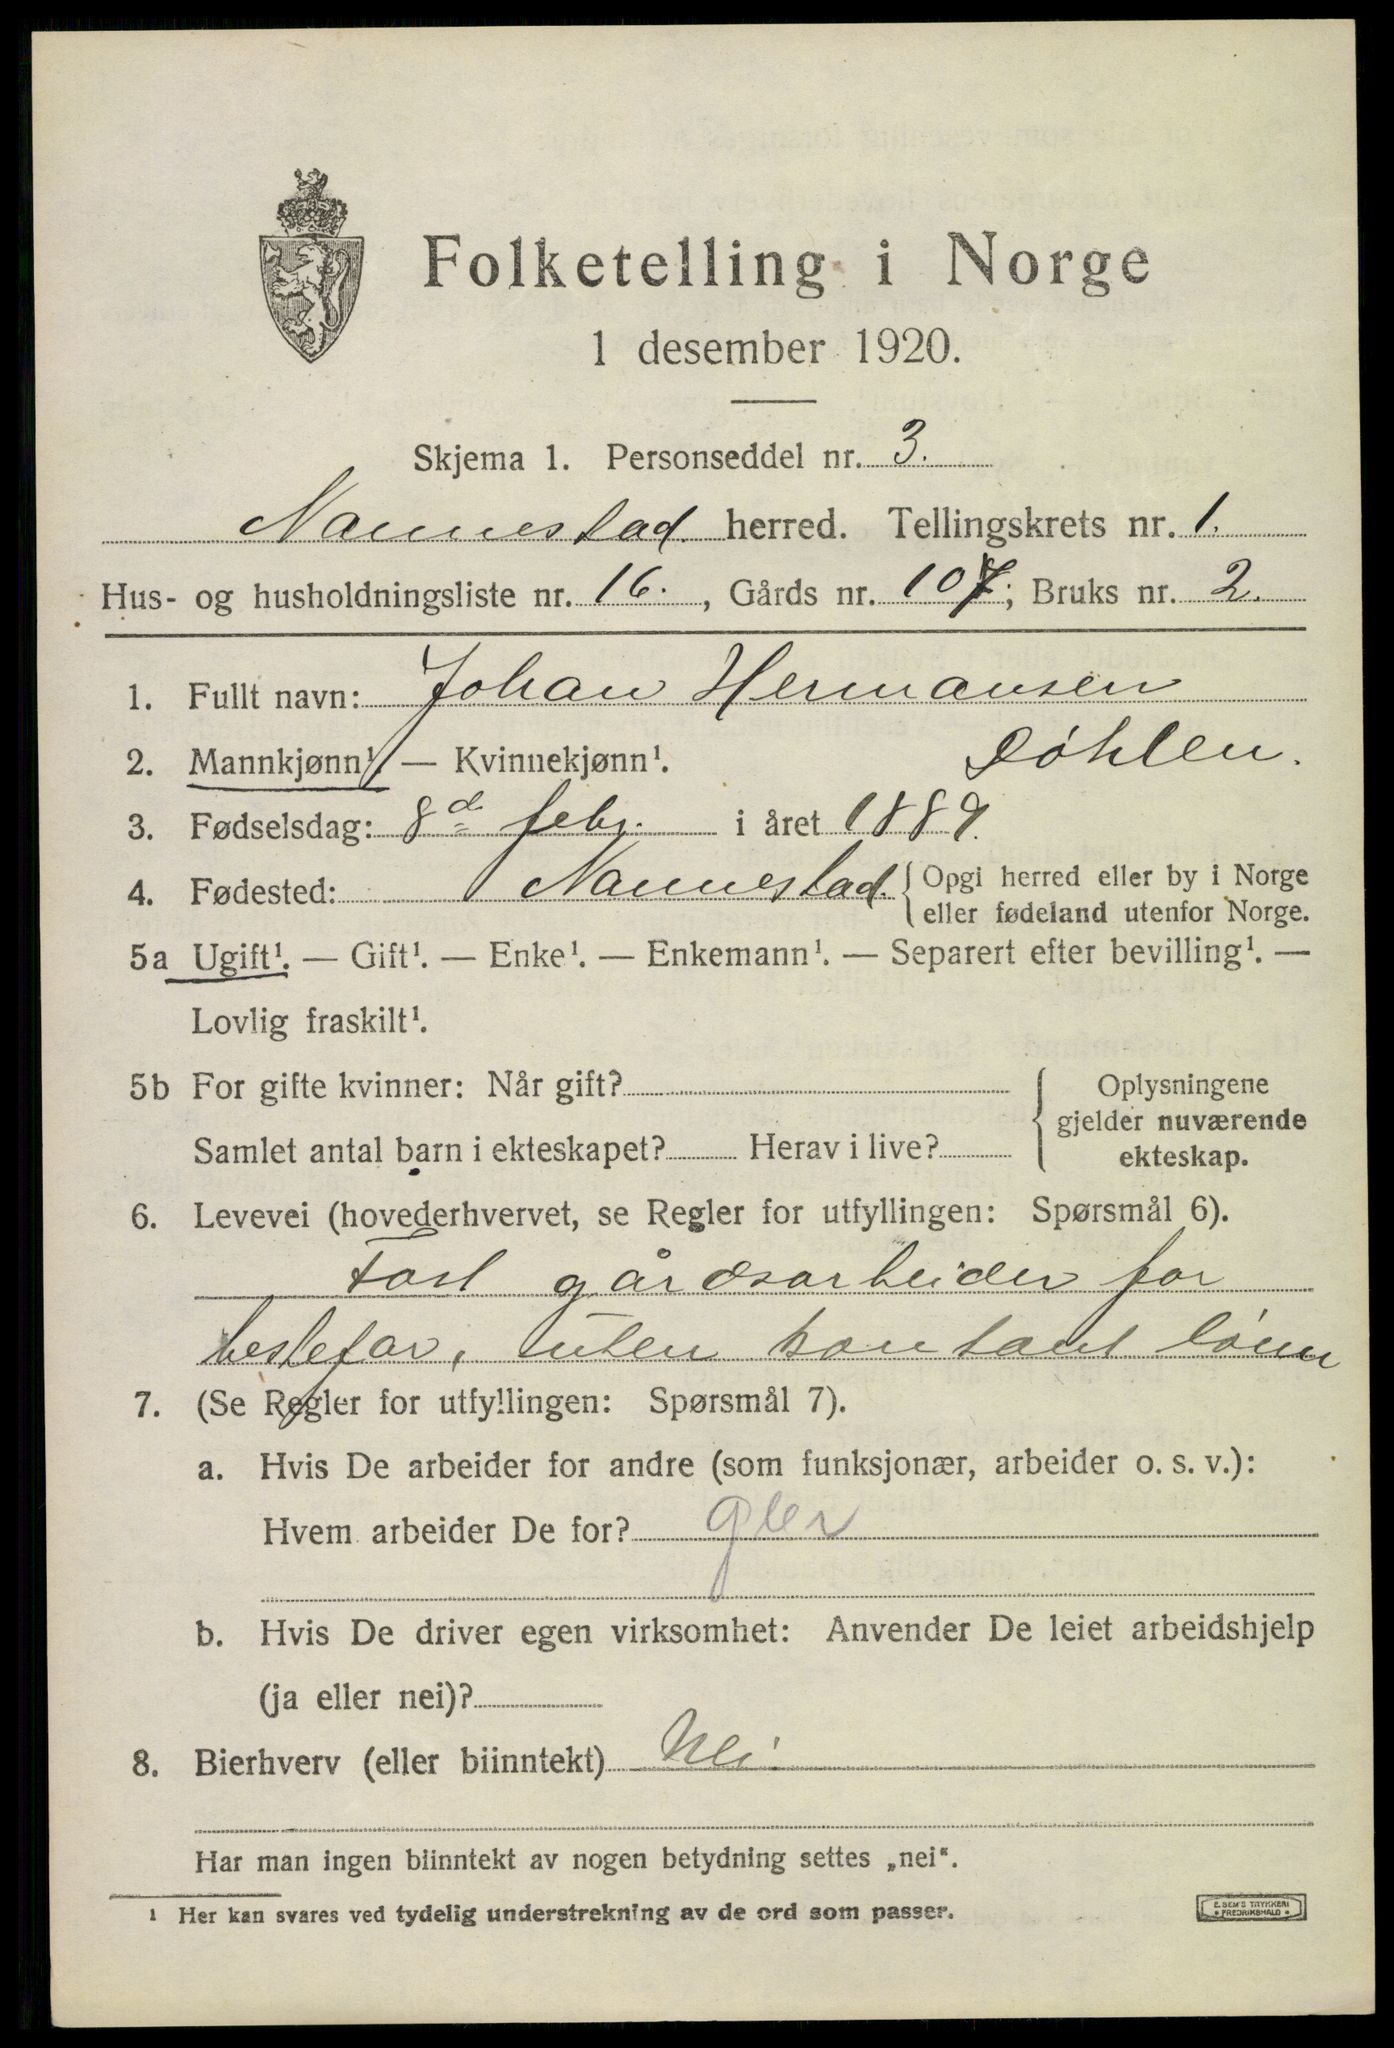 Folketelling i Norge
1 desember 1920.
Skjema 1. Personseddel nr. 3.
Nannestad herred. Tellingskrets nr. 1.
Hus- og husholdningsliste nr. 16. , Gårds nr. 107; Bruks nr. 2.
1. Fullt navn: Johan Hermansen
Døhlen.
2. Mannkjønn¹. — Kvinnekjønn¹.
3. Fødselsdag: 8de febr. i året 1889.
4. Fødested: Nannestad. { Opgi herred eller by i Norge
eller fødeland utenfor Norge.
5a Ugift¹. — Gift¹. — Enke¹. — Enkemann¹. — Separert efter bevilling¹. —
Lovlig fraskilt¹.
5b For gifte kvinner: Når gift?
Samlet antal barn i ekteskapet? Herav i live?
{ Oplysningene
gjelder nuværende
ekteskap.
6. Levevei (hovederhvervet, se Regler for utfyllingen: Spørsmål 6).
Fast gårdsarbeider for
bestefar, uten kontant lønn
7. (Se Regler for utfyllingen: Spørsmål 7).
a. Hvis De arbeider for andre (som funksjonær, arbeider o. s. v.):
Hvem arbeider De for?
b. Hvis De driver egen virksomhet: Anvender De leiet arbeidshjelp
(ja eller nei)?
8. Bierhverv (eller biinntekt) Nei
Har man ingen biinntekt av nogen betydning settes „nei".
¹ Her kan svares ved tydelig understrekning av de ord som passer.
E. SEM'S TRYKKERI
• FREDRIKSHALD •